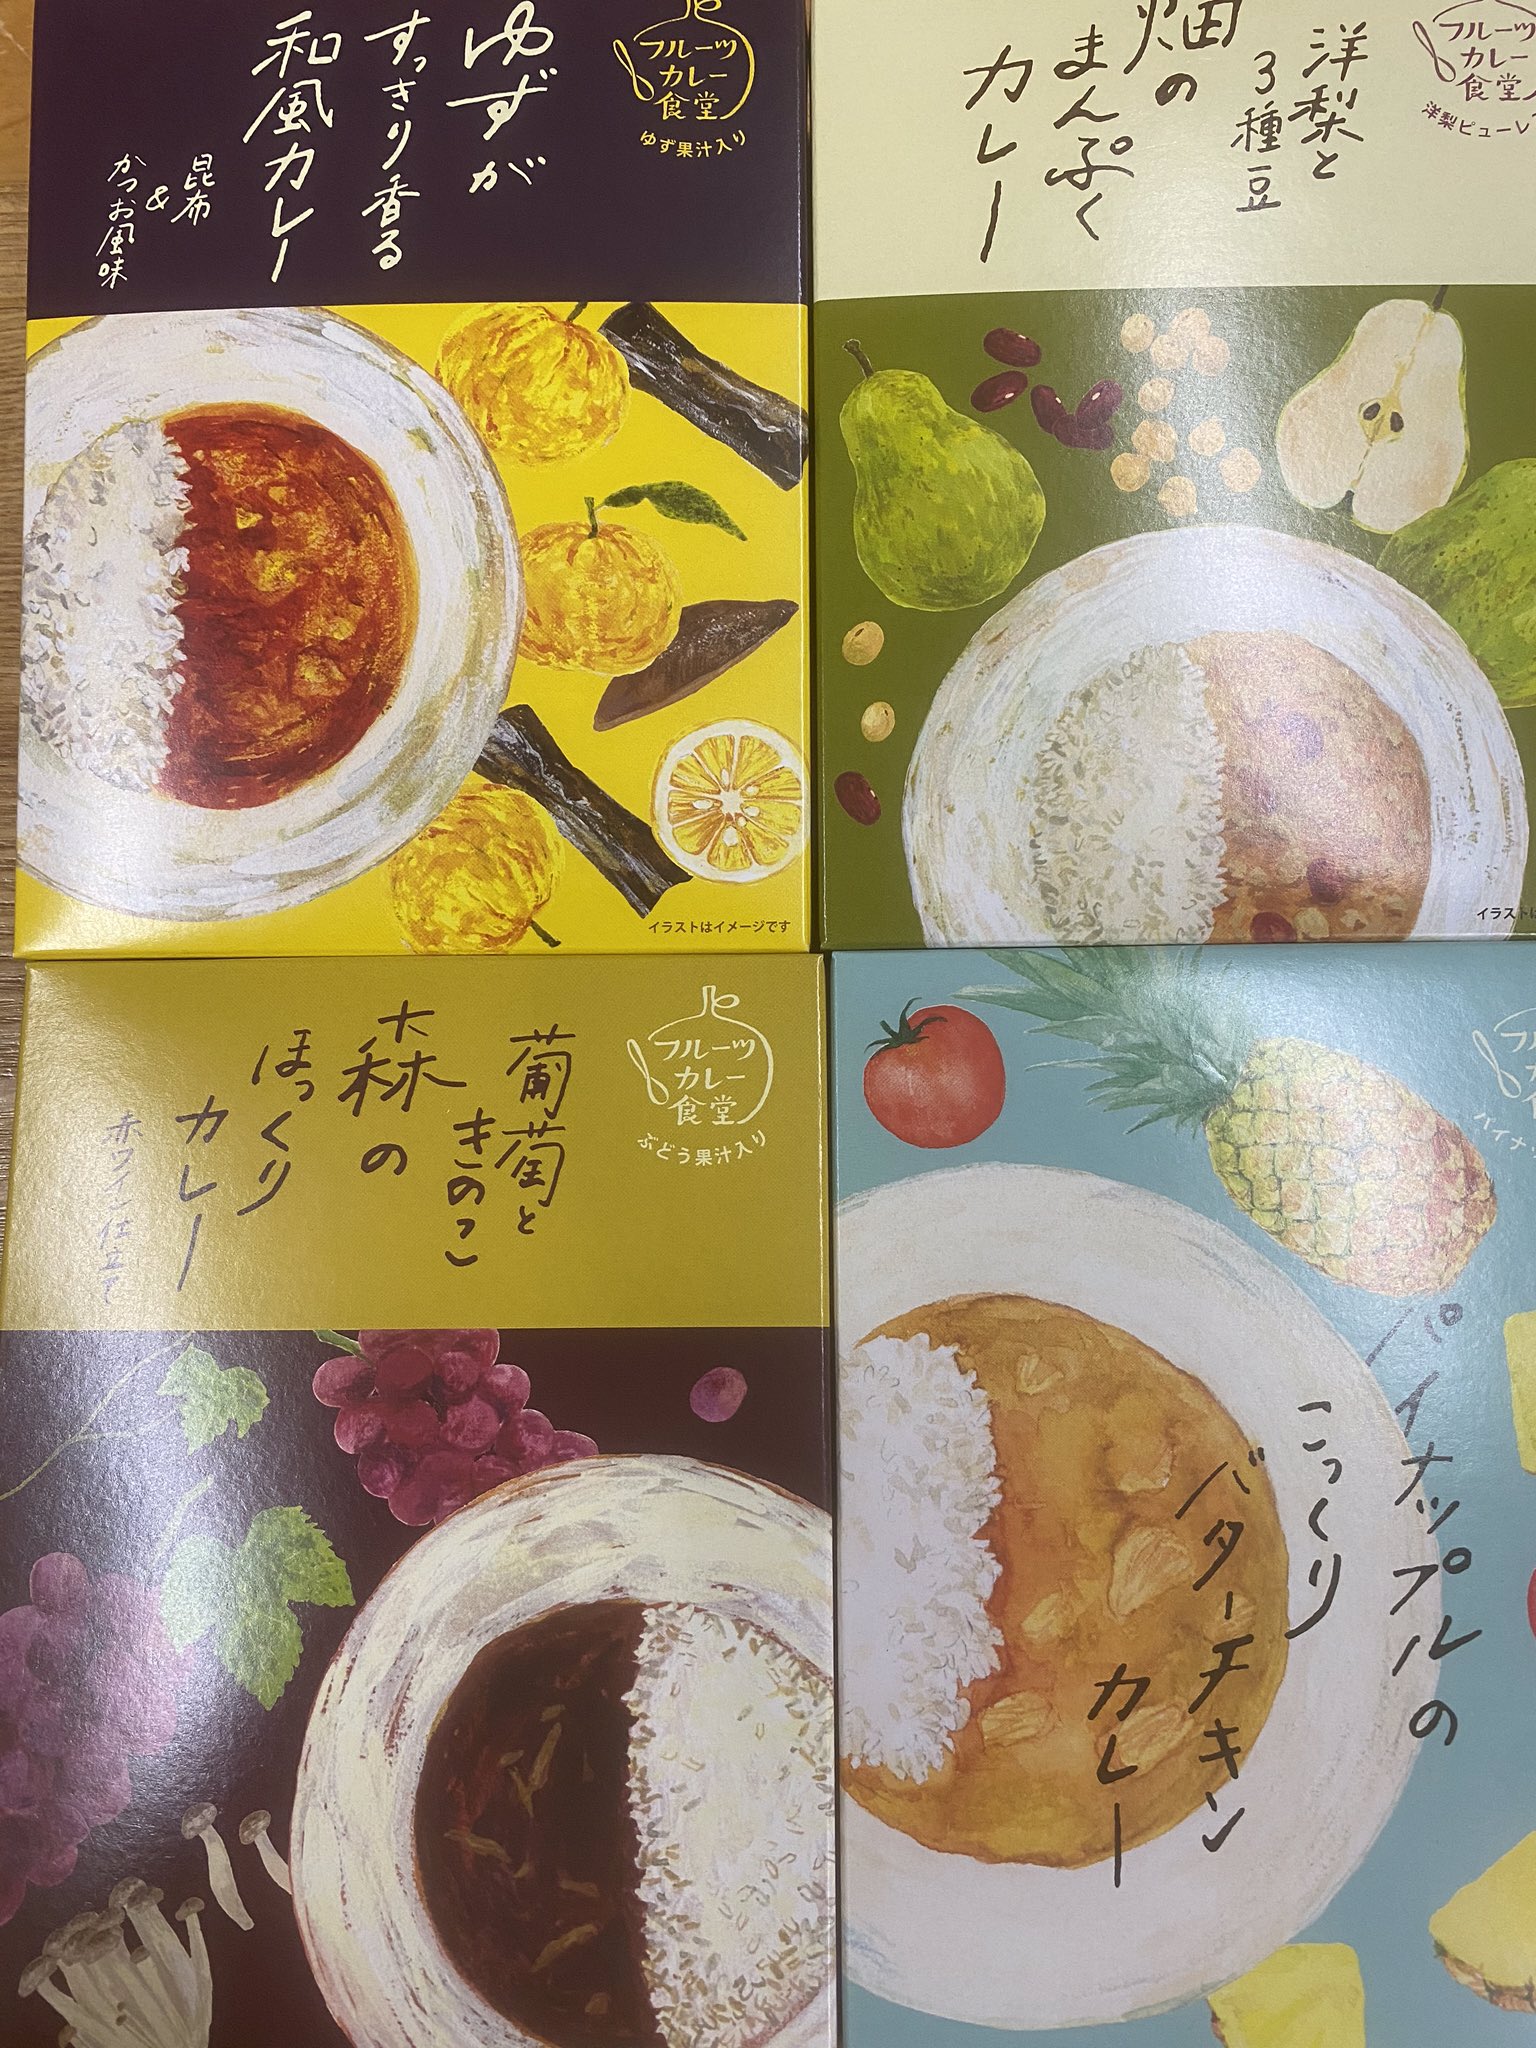 ゆずが
すっきり香る
和風カレー
昆布
&
かつお風味
フルーツ
カレー
食堂
ゆず果汁入り
イラストはイメージです
洋梨と
3種豆
畑の
まんぷく
カレー
フルーツ
カレー
食堂
洋梨ピューレ
イラストは
葡萄と
きのこ
森の
ほっくり
カレー
赤ワイン仕立て
フルーツ
カレー
食堂
ぶどう果汁入り
パイナップルの
こっくり
バターチキン
カレー